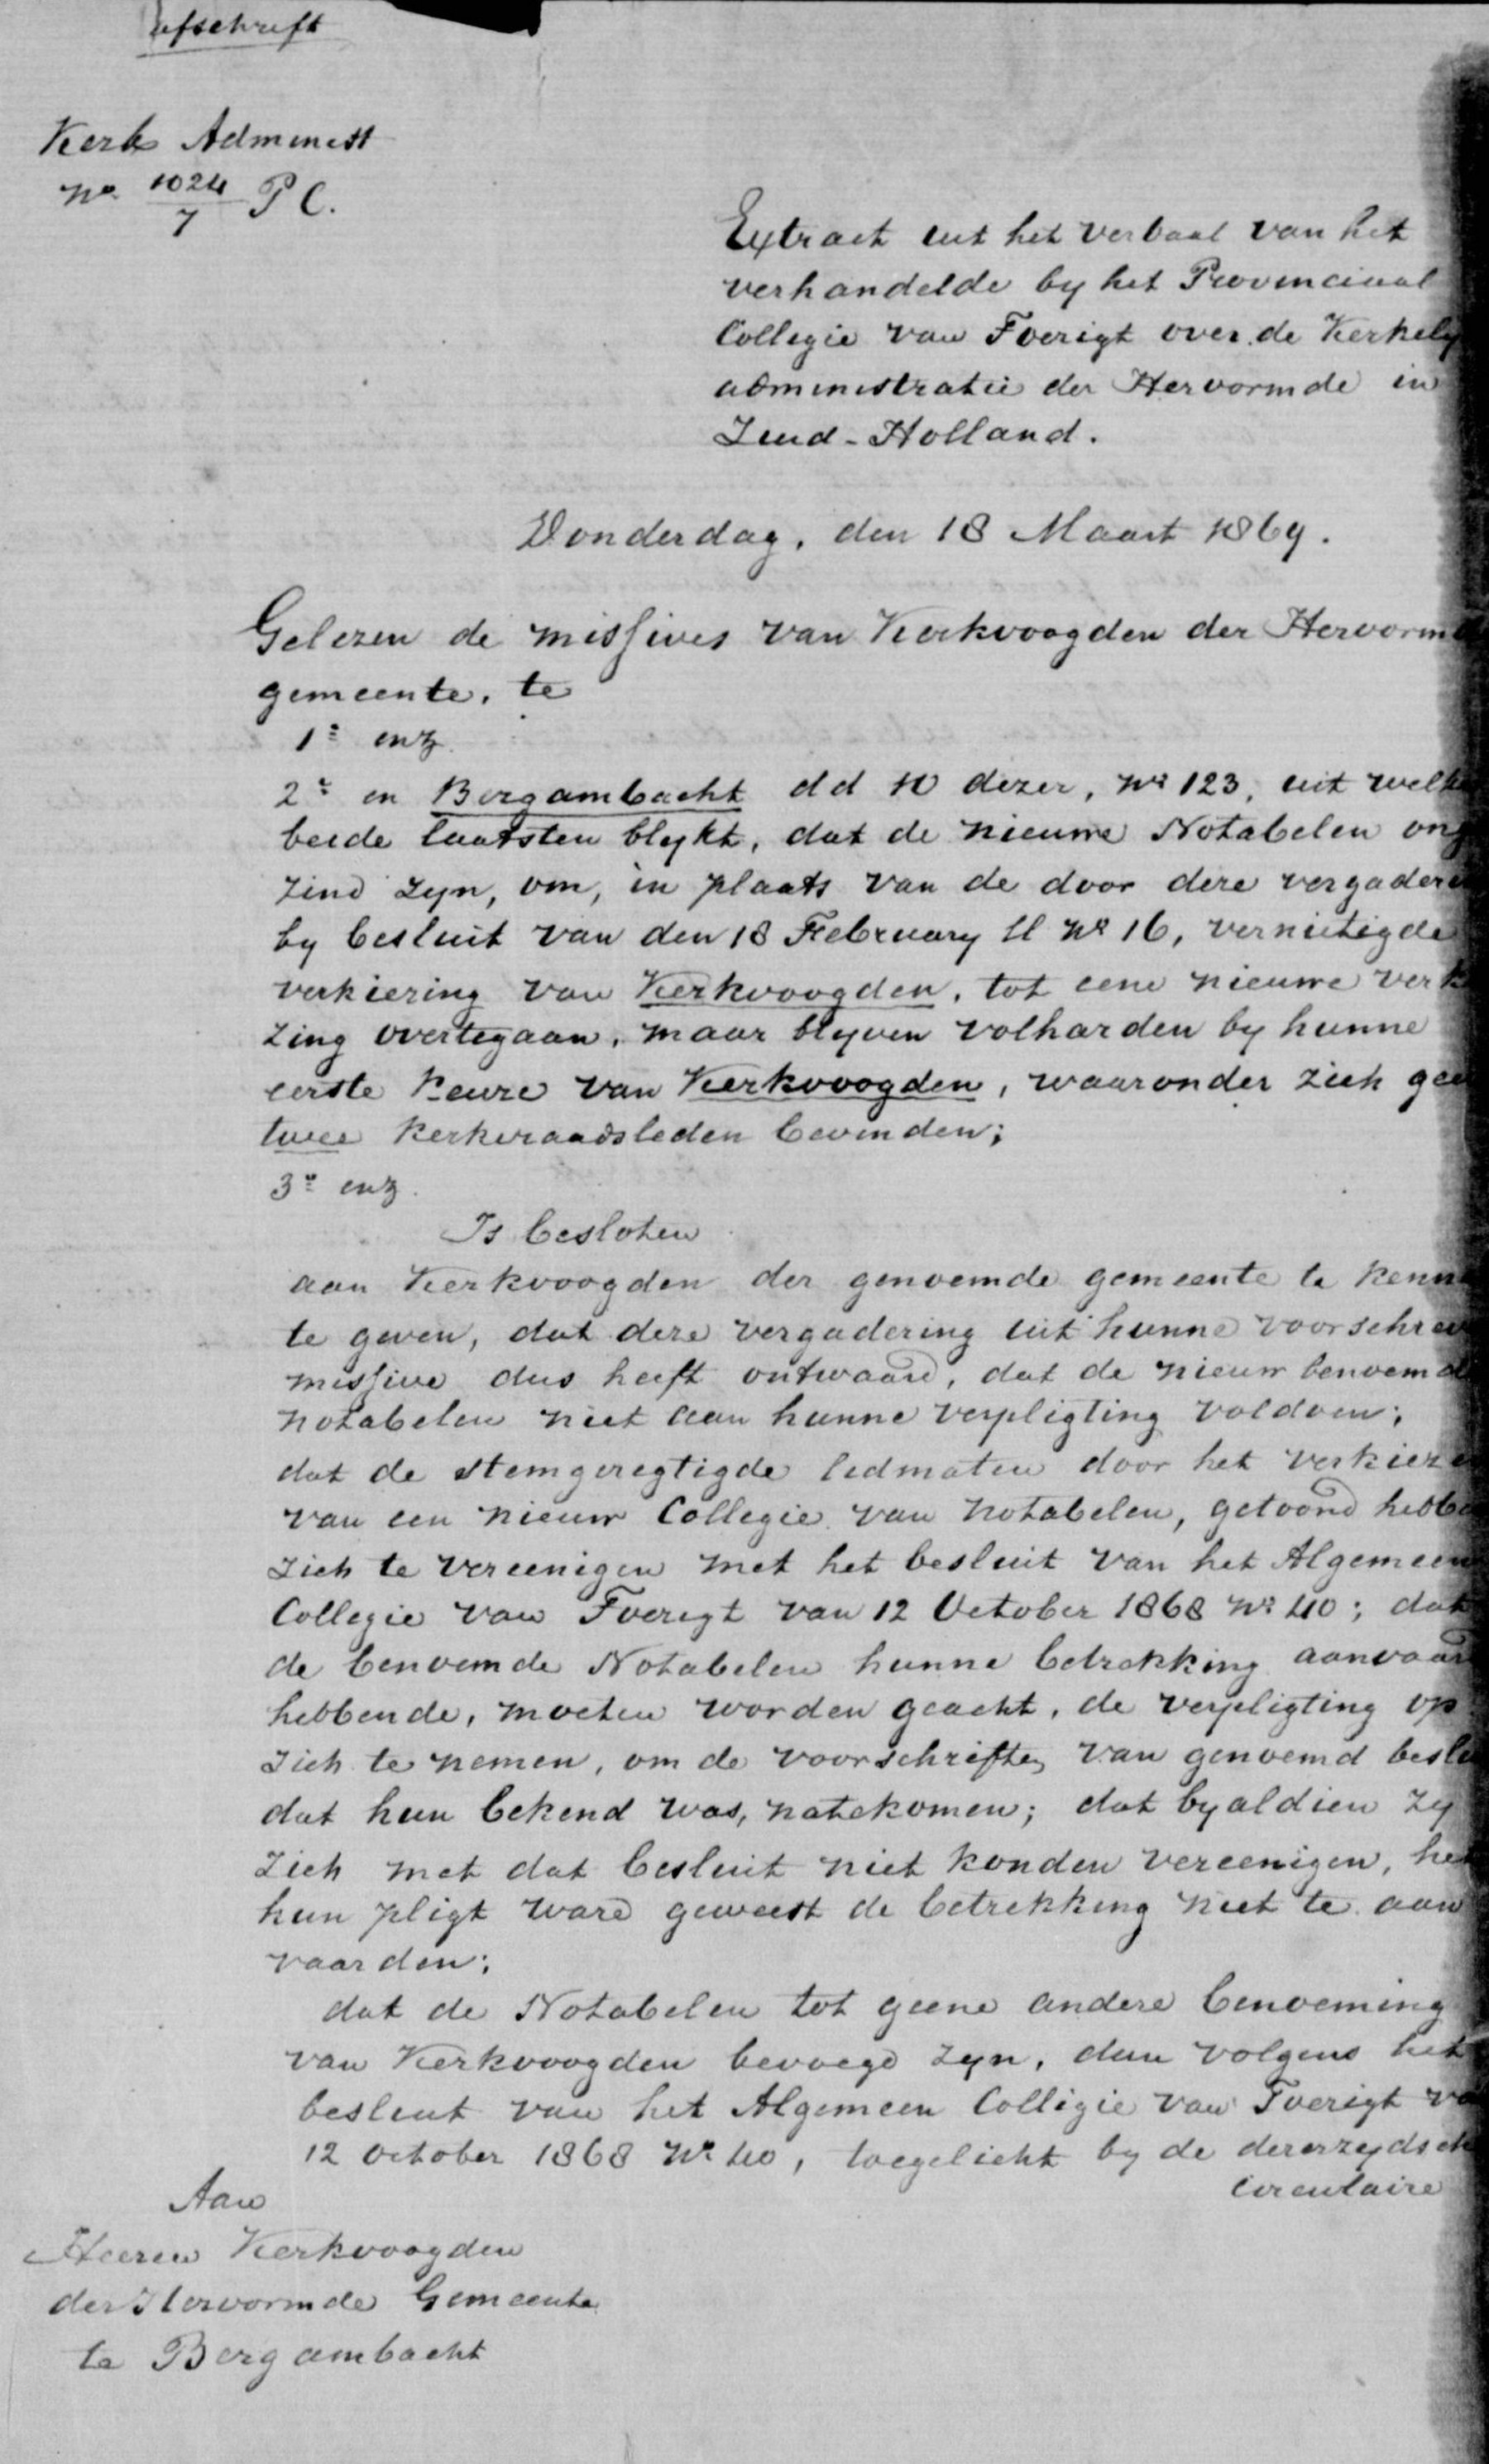 Afschrift
Kerk Administ
No 1024/7 P C.
Extract uit het verbaal van het
verhandelde by het Provinciaal
Collegie van Toezigt over de Kerkely
administratie der Hervormde in
Zuid-Holland.
Donderdag, den 18 Maart 1869.
Gelezen de missives van Kerkvoogden der Hervorm
gemeente, te
1o enz.
2o en Bergambacht dd 10 dezer, No 123, uit welke
beide laatsten blykt, dat de nieuwe Notabelen ong
zind zyn, om, in plaats van de door deze vergadere
by besluit van den 18 February ll No 16, vernietigde
verkiezing van Kerkvoogden, tot eene nieuwe verk
zing overtegaan, maar blyven volharden by hunne
eerste keuze van Kerkvoogden, waaronder zich gee
twee kerkeraadsleden bevinden;
3o enz.
Is besloten
aan Kerkvoogden der genoemde gemeente te kenn
te geven, dat deze vergadering uit hunne voorschrev
missive dus heeft ontwaard, dat de nieuw benoemd
notabelen niet aan hunne verpligting voldoen;
dat de stemgeregtigde ledmaten door het verkieze
van een nieuw Collegie van notabelen, getoond hebbe
zich te vereenigen met het besluit van het Algemeen
Collegie van Toezigt van 12 October 1868 No 40; dat
de benoemde Notabelen hunne betrekking aanvaard
hebbende, moeten worden geacht, de verpligting op
zich te nemen, om de voorschriften van genoemd beslu
dat hun bekend was, natekomen; dat byaldien zy
zich met dat besluit niet konden vereenigen, het
hun pligt ware geweest de betrekking niet te aan
vaarden;
dat de Notabelen tot geene andere benoeming
van Kerkvoogden bevoegd zyn, dan volgens het
besluit van het Algemeen Collegie van Toezigt va
12 October 1868 No 40, toegelicht by de dezerzydsch
circulaire
Aan
Heeren Kerkvoogden
der Hervormde Gemeente
te Bergambacht